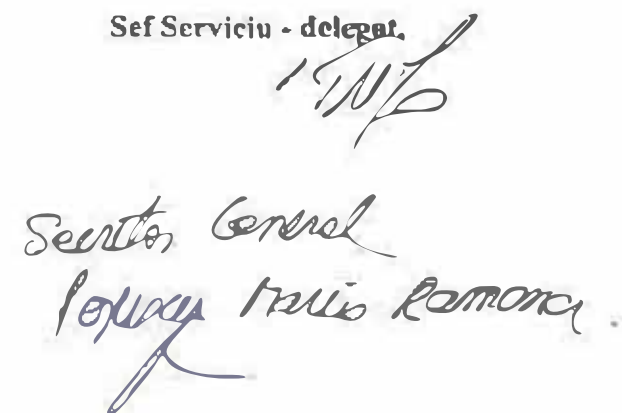 Sef Serviciu - delegat,
Secretar General
Maria Ramona